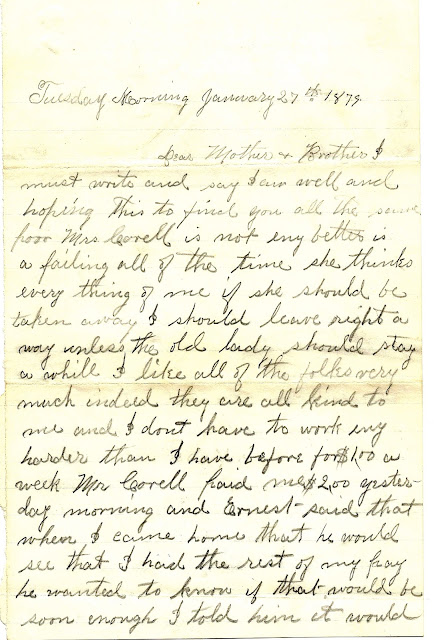 Tuesday Morning January 27th 1879
Dear Mother & Brother I
must write and say I am well and
hoping this to find you all the same
poor Mrs Corell is not eny better is
a failing all of the time she thinks
every thing of me if she should be
taken away I should leave right a
way unless the old lady should stay
a while I like all of the folks very
much indeed they are all kind to
me and I dont have to work eny
harder than I have before for $1.00 a
week Mr Corell paid me $2.00 yester-
day morning and Ernest said that
when I came home that he would
see that I had the rest of my pay
he wanted to know if that would be
soon enough I told him it would